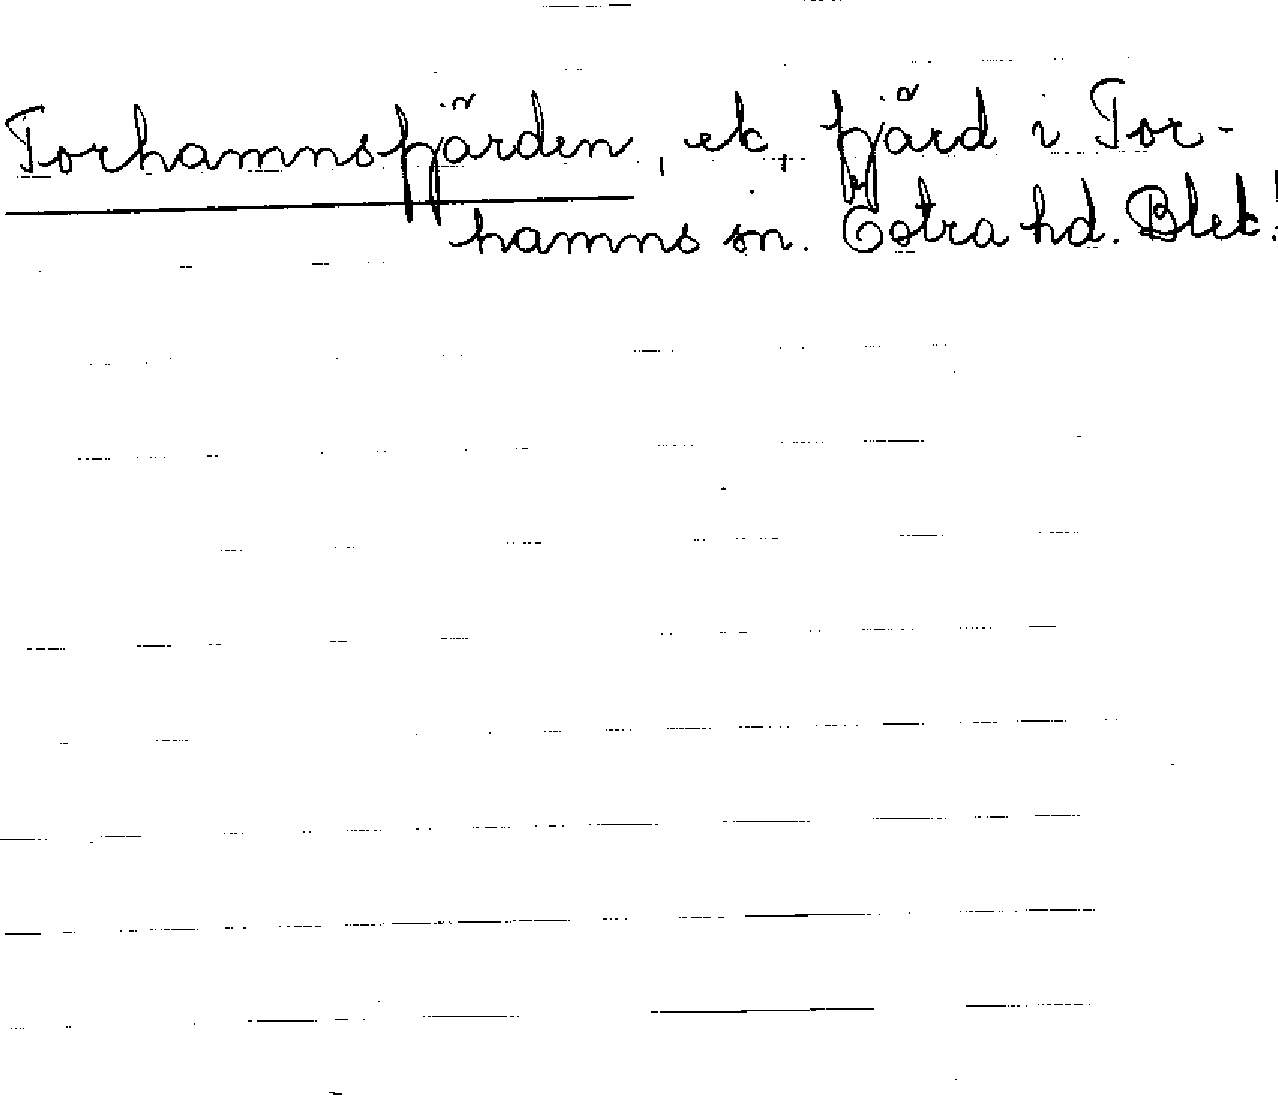 Torhamnsfjärden, ek, fjärd i Tor-
hamns sn. Östra hd. Blek!